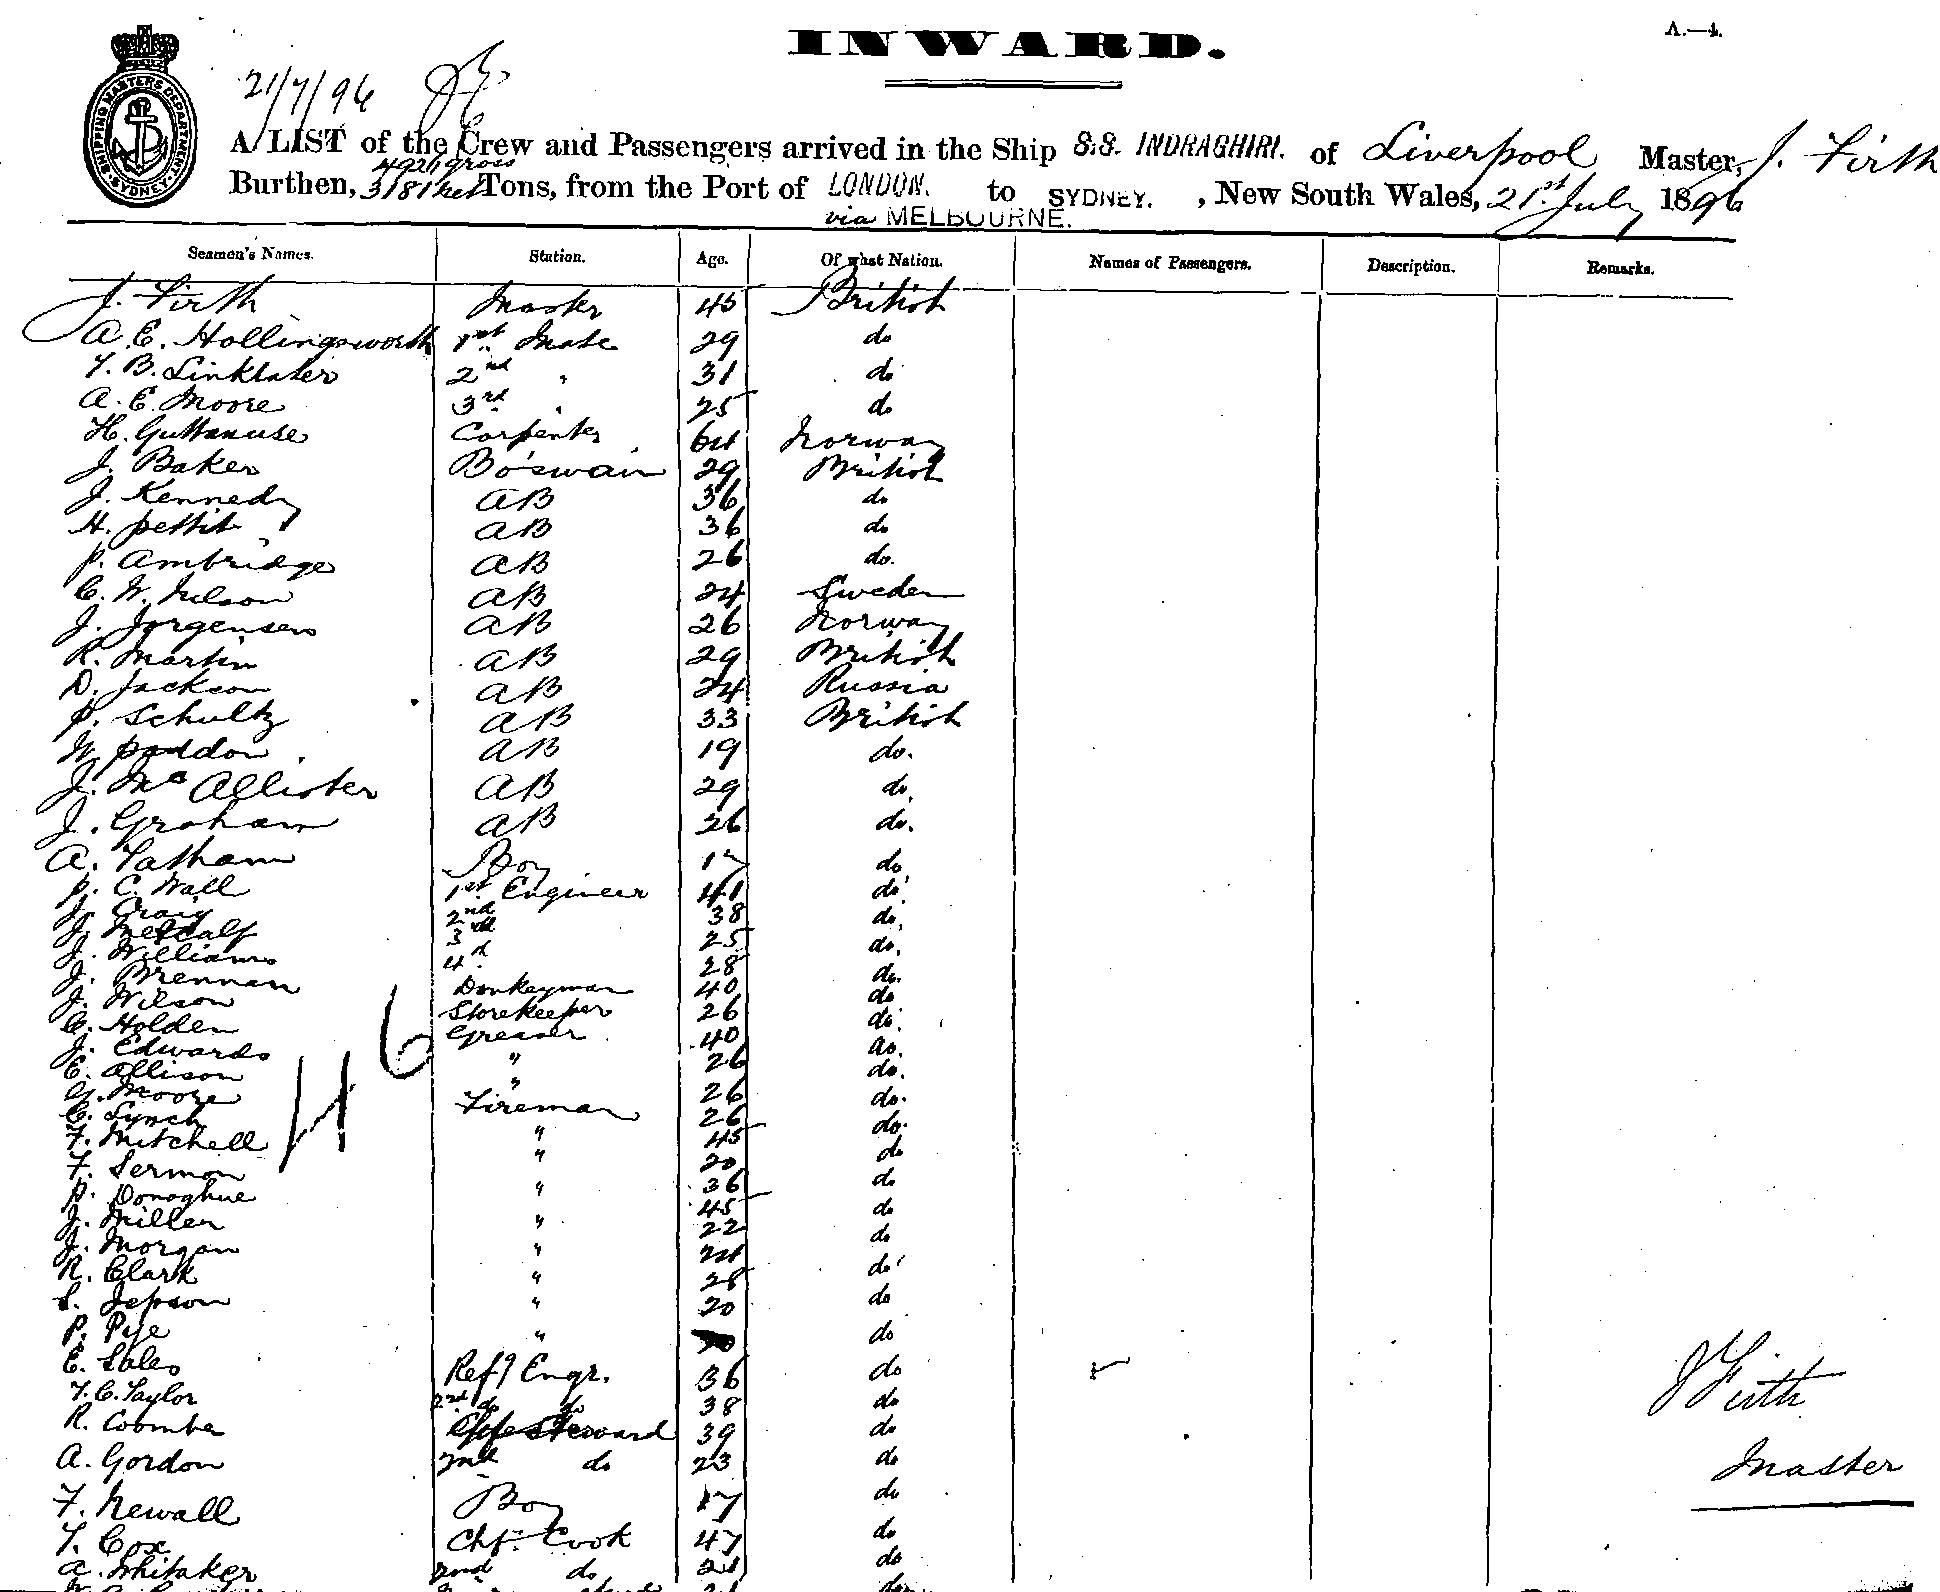 INWARD.
A.—4.
SHIPPING MASTERS DEPARTMENT SYDNEY
21/7/96
A LIST of the Crew and Passengers arrived in the Ship S.S. INDRAGHIRI. of Liverpool Master, J. Firth
4921 gross
Burthen, 3181 net Tons, from the Port of LONDON. to SYDNEY. , New South Wales, 21st July 1896
via MELBOURNE.
Seamen's Names. Station. Age. Of what Nation. Names of Passengers. Description. Remarks.
J. Firth Master 45 British
A. E. Hollingsworth 1st Mate 29 do
T. B. Linklater 2nd " 31 do
A. E. Moore 3rd " 25 do
H. Carpenter 64 Norway
J. Baker Bo'swain 29 British
J. Kennedy AB 36 do
H. Pettit AB 36 do
P. Ambridge AB 26 do.
C. W. Nelson AB 24 Sweden
J. Jorgensen AB 26 Norway
R. Martin AB 29 British
D. Jackson AB 24 Russia
P. Schultz AB 33 British
W. Paddon AB 19 do.
J. McAllister AB 29 do.
J. Graham AB 26 do.
A. Tatham Boy 17 do
P. C. Wall 1st Engineer 41 do
J. Craig 2nd 38 do.
J. Metcalf 3rd 25 do.
J. Williams 4th 28 do.
J. Brennan Donkeyman 40 do
J. Wilson Storekeeper 26 do
C. Holden Greaser 40 do.
J. Edwards " 26 do.
E. Allison " 26 do.
G. Moore Fireman 26 do.
C. Lynch " 45 do
F. Mitchell " 20 do
F. Sermon " 36 do
P. Donoghue " 45 do
J. Miller " 22 do
J. Morgan " 24 do
R. Clark " 28 do
S. Jepson " 20 do
P. Pye " do
E. Sales Refg Engr. 36 do
T. C. Taylor 2nd do do 38 do
R. Coomber Steward 39 do
A. Gordon 2nd do 23 do
F. Newall Boy 17 do
T. Cox Chf. Cook 47 do
A. Whitaker 2nd do 21 do
46
J Firth
Master